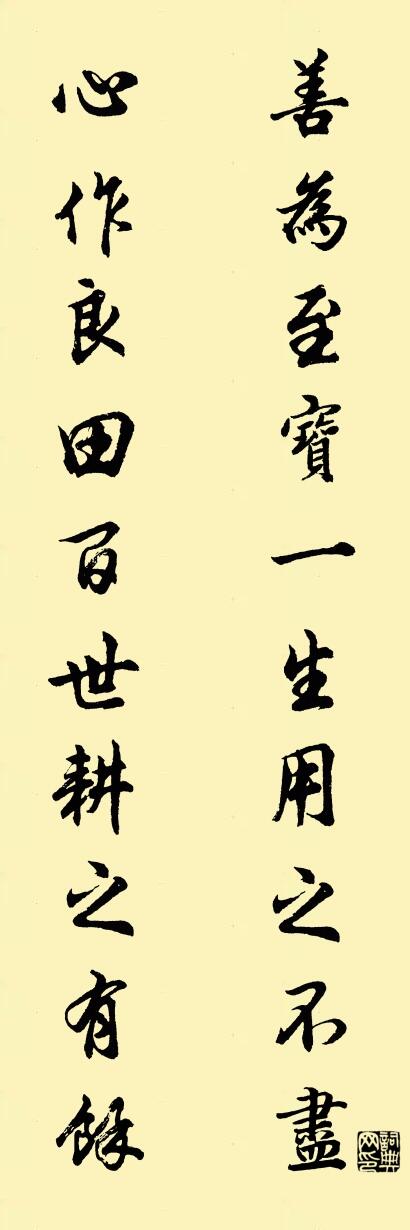 善為至寶一生用之不盡
心作良田百世耕之有餘
詞典網印